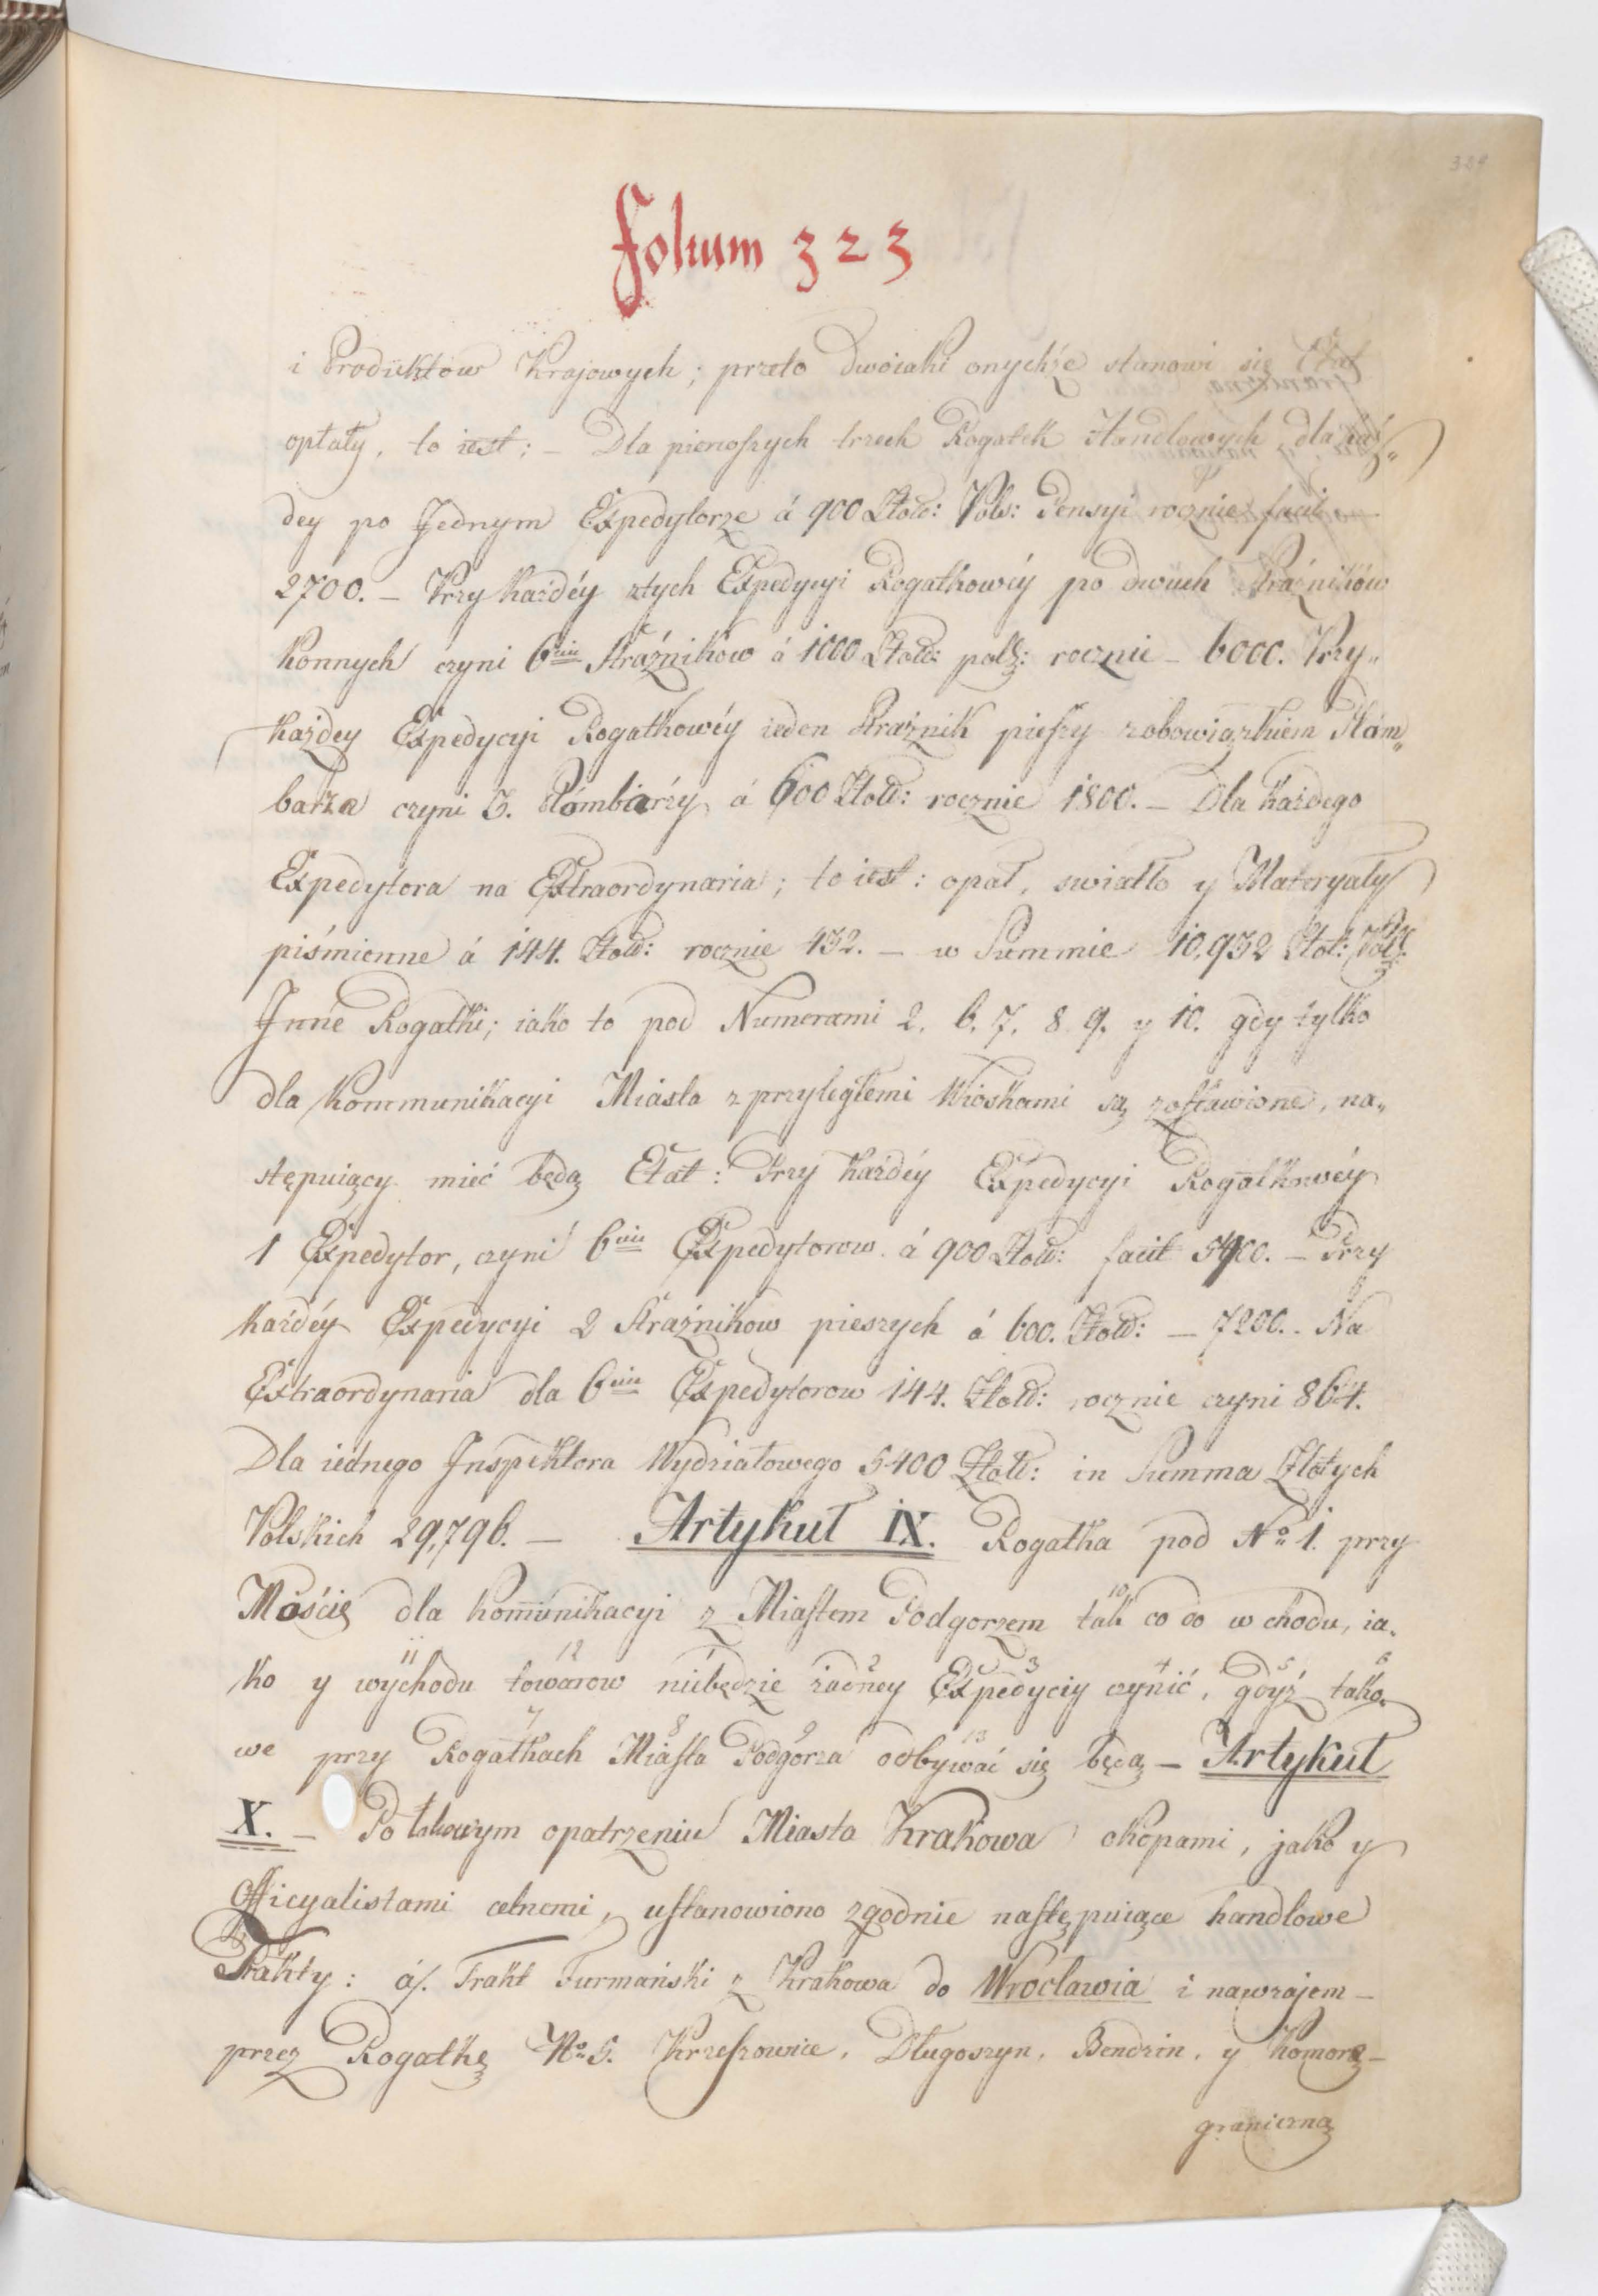 324
folium 323
i Produktow Krajowych; przeto dwoiaki onychże stanowi się Etat
opłaty, to iest: – Dla pierwſzych trzech Rogatek Handlowych, dla każ„
dey po Jednym Expedytorze á 900 Złoŧ: Pols: Pensyi rocznie facit –
2700. – Przy każdéy z tych Expedycyi Rogatkowéy po dwuch Straźników
konnych czyni 6ciu Straźnikow á 1000 Złoŧ: polſ: rocznie – 6000. Przy„
każdey Expedycyi Rogatkowéy ieden Straźnik pieſzy z obowiązkiem Plom„
barza czyni 3. Plombiarzy á 600 Złoŧ: rocznie 1800. – Dla każdego
Expedytora na Extraordynaria; to iest: opał, swiatło y Materyały
piśmienne á 144. Złoŧ: rocznie 432. – w Summie 10,932 Złot: Polſ:
Jnne Rogatki; iako to pod Numerami 2, 6, 7, 8. 9, y 10. gdy tylko
dla Kommunikacyi Miasta z przyległemi Wioskami są zoſtawione, na„
stępuiący mieć będą Etat: Przy każdéy Expedycyi Rogatkowéy
1 Expedytor, czyni 6ciu Expedytorow á 900 Złoŧ: facit 5400. – Przy
każdéy Expedycyi 2 Straźnikow pieszych á 600. Złoŧ: – 7200. – Na
Extraordynaria dla 6ciu Expedytorow 144. Złoŧ: rocznie czyni 864.
Dla iednego Jnspektora Wydziałowego 5400 Złoŧ: in Summa Złotych
Polskich 29,796. – Artykuł IX. Rogatka pod No 1. przy
Moście dla kom̄unikacyi z Miaſtem Podgorzem tak co do wchodu, ia„
ko y wychodu towarow niebędzie żadney Expedyciy czynić, gdyż tako„
we przy Rogatkach Miaſta Podgorza odbywać się będą – Artykuł
X. – Po takowym opatrzeniu Miasta Krakowa okopami, jako y
Officyalistami celnemi, uſtanowiono zgodnie naſtępuiące handlowe
Trakty: á/. Trakt Furmański z Krakowa do Wrocławia i nawzajem –
przez Rogatkę No 5. Krzeſzowice, Długoszyn, Bendzin, y Komorę –
graniczną